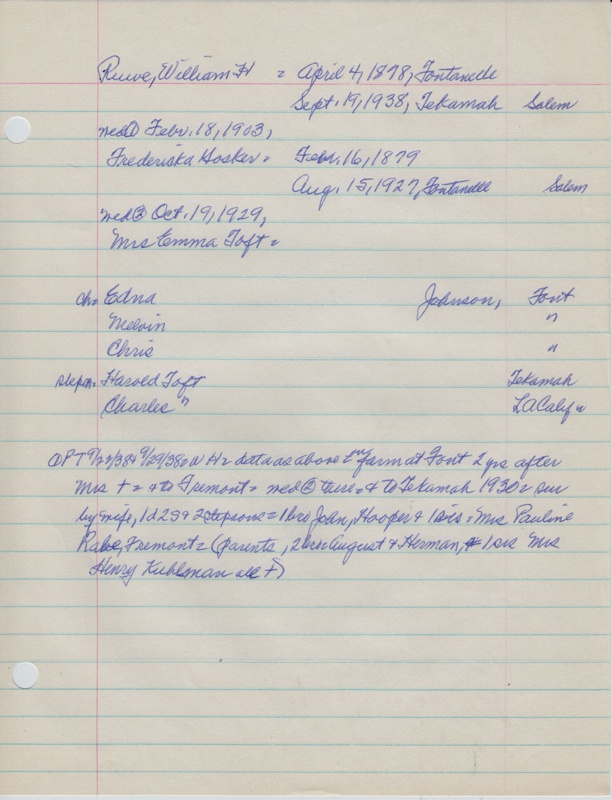 Ruwe, William H = April 4, 1878, Fontanelle
Sept. 19, 1938, Tekamah Salem
wed① Febr. 18, 1903,
Frederiska Hosker = Febr. 16, 1879
Aug. 15, 1927, Fontanelle Salem
wed② Oct. 19, 1929,
Mrs Emma Toft =
ch = Edna Johnson, Font
Melvin "
Chris "
stepch. Harold Toft Tekamah
Charles " LA Calif "
OPT 9/22/38 + 9/29/38 W H = data as above = farm at Font 2 yrs after
Mrs + = + to Fremont = wed② there = + to Tekamah 1930 = sur
by wife, 1 d 2 s + 2 stepsons = 1 bro John, Hooper + 1 sis = Mrs Pauline
Rabe, Fremont = (parents, 2 bros August + Herman, + 1 sis Mrs
Henry Kuhlman all +)